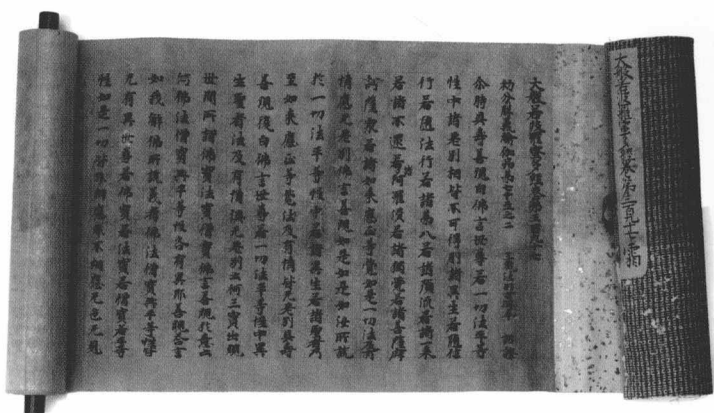 大般若波羅蜜多經卷第三百九十七 霜
大般若波羅蜜多經卷第三百九十七
初分勝義瑜伽品第七十五之二 三藏法師玄奘奉 詔譯
尒時具壽善現白佛言世尊若一切法平等
性中諸差別相皆不可得則諸異生若隨信
行若隨法行若諸第八若諸預流若諸一來
若諸不還若諸阿羅漢若諸獨覺若諸菩薩摩
訶薩眾若諸如來應正等覺如是一切法及有
情應无差別佛言善現如是如是如汝所說
於一切法平等性中若諸異生若諸聖者乃
至如來應正等覺法及有情皆无差別具壽
善現復白佛言世尊若一切法平等性中異
生聖者法及有情俱无差別云何三寶出現
世間所謂佛寶法寶僧寶佛言善現於意云
何佛法僧寶與平等性各有異耶善現答言
如我解佛所說義者佛法僧寶與平等性皆
无有異世尊若佛寶若法寶若僧寶若平等
性如是一切皆非相應非不相應无色无見